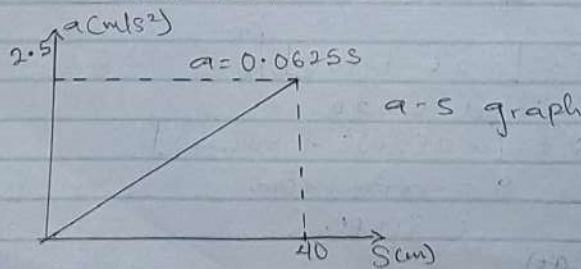 a(m/s²)
2.5
a=0.0625S
a-s graph
40
S(m)